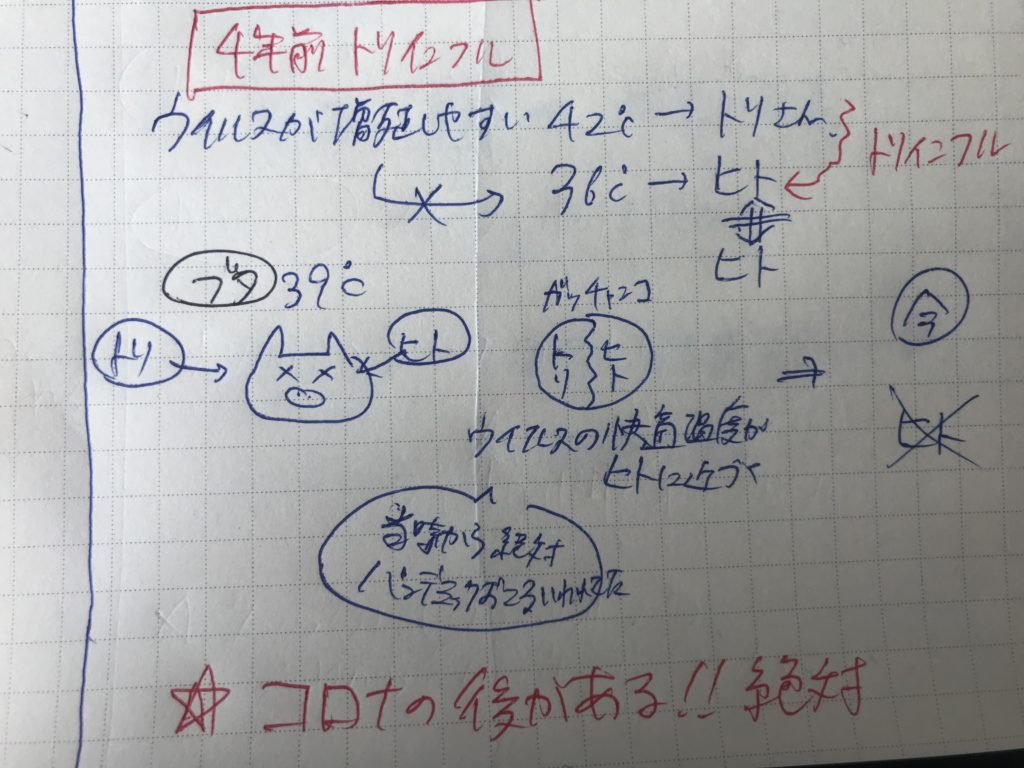 4年前 トリインフル
ウイルスが増殖しやすい 42℃ → トリさん
トリインフル
36℃ → ヒト
ヒト
ブタ 39℃
トリ
ヒト
ガッチャンコ
トリ
ヒト
⇒
今
ヒト
ウイルスの快適温度が
ヒトに近づく
昔から絶対
パンデミックおこるいわれてた
☆ コロナの後がある!! 絶対